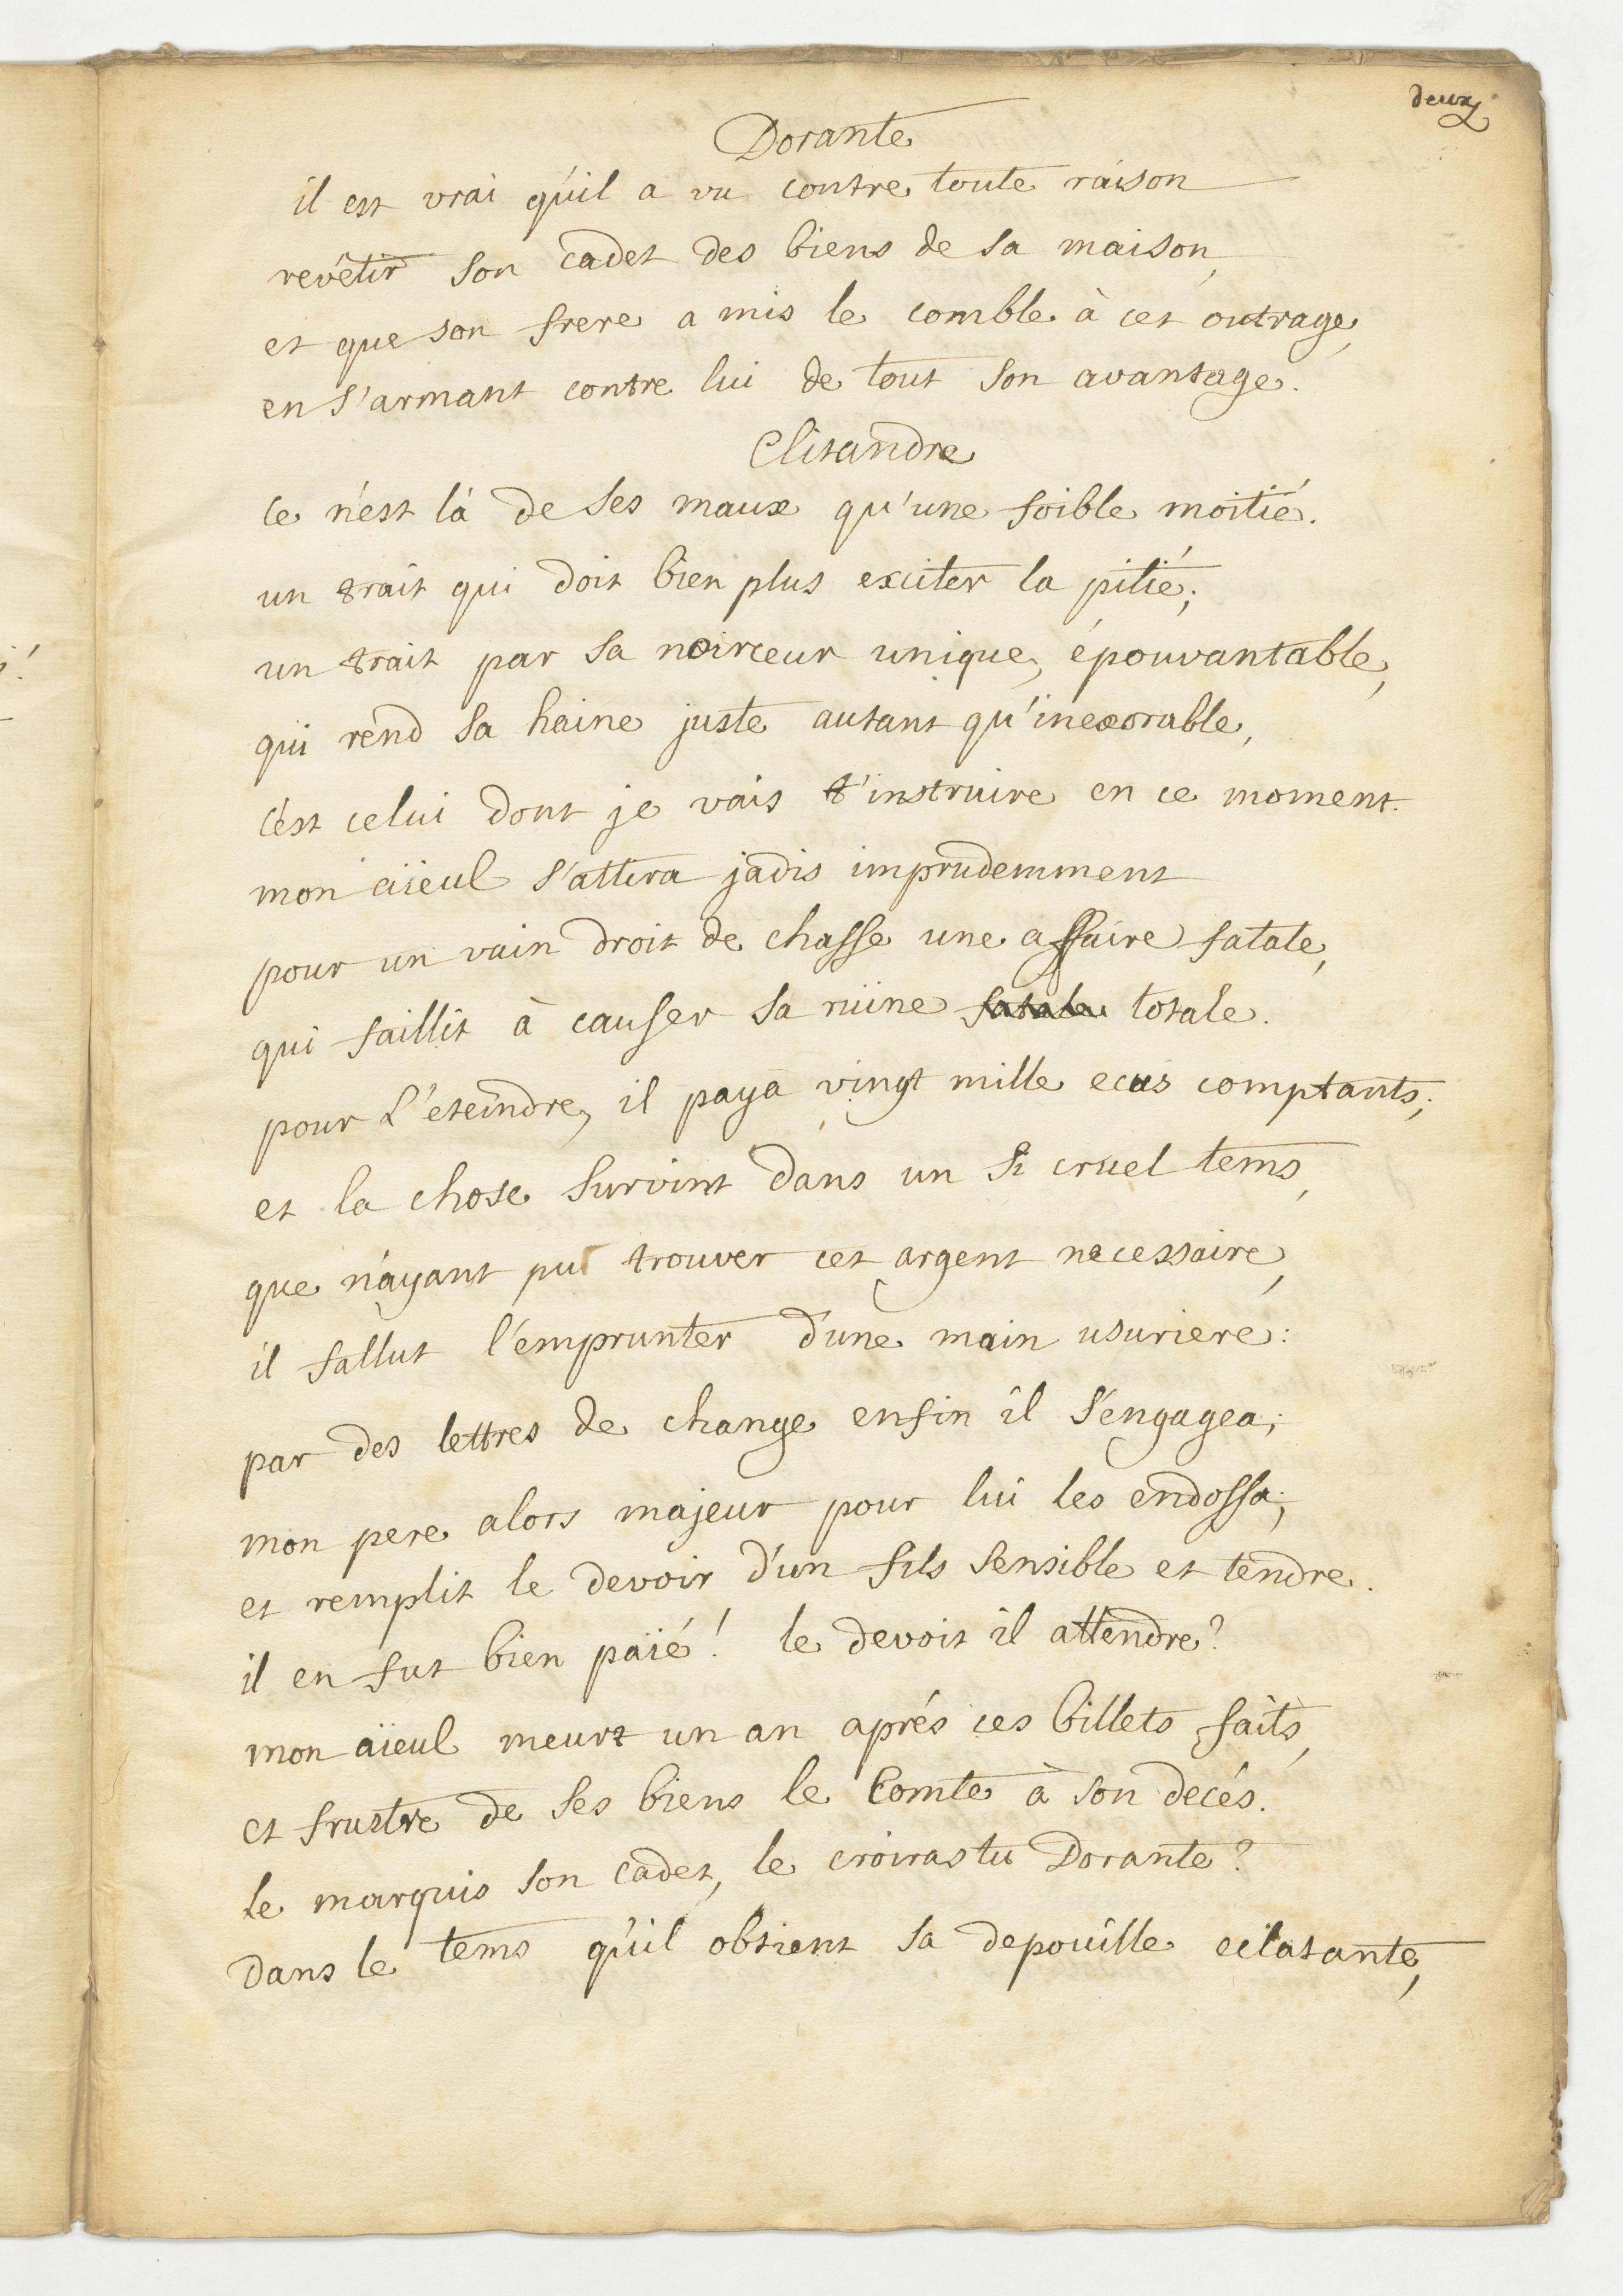 deux
Dorante
il est vrai qu'il a vu contre toute raison
revêtir son cadet des biens de sa maison,
et que son frere a mis le comble à cet outrage,
en s'armant contre lui de tout son avantage.
Clitandre
ce n'est là de ses maux qu'une foible moitié.
un trait qui doit bien plus exciter la pitié;
un trait par sa noirceur unique, épouvantable,
qui rend sa haine juste autant qu'inexorable,
c'est celui dont je vais t'instruire en ce moment.
mon aïeul s'attira jadis imprudemment
pour un vain droit de chasse une affaire fatale,
qui faillit à causer sa ruine fatale totale.
pour l'eteindre, il paya vingt mille ecus comptants;
et la chose survint dans un si cruel tems,
que n'ayant pu trouver cet argent necessaire,
il fallut l'emprunter d'une main usuriere:
par des lettres de change enfin il s'engagea;
mon pere alors majeur pour lui les endossa;
et remplit le devoir d'un fils sensible et tendre.
il en fut bien païé! le devoit il attendre?
mon aïeul meurt un an aprés ces billets faits,
et frustre de ses biens le Comte à son decés.
le marquis son cadet, le croiras tu Dorante?
dans le tems qu'il obtient sa depouille eclatante,